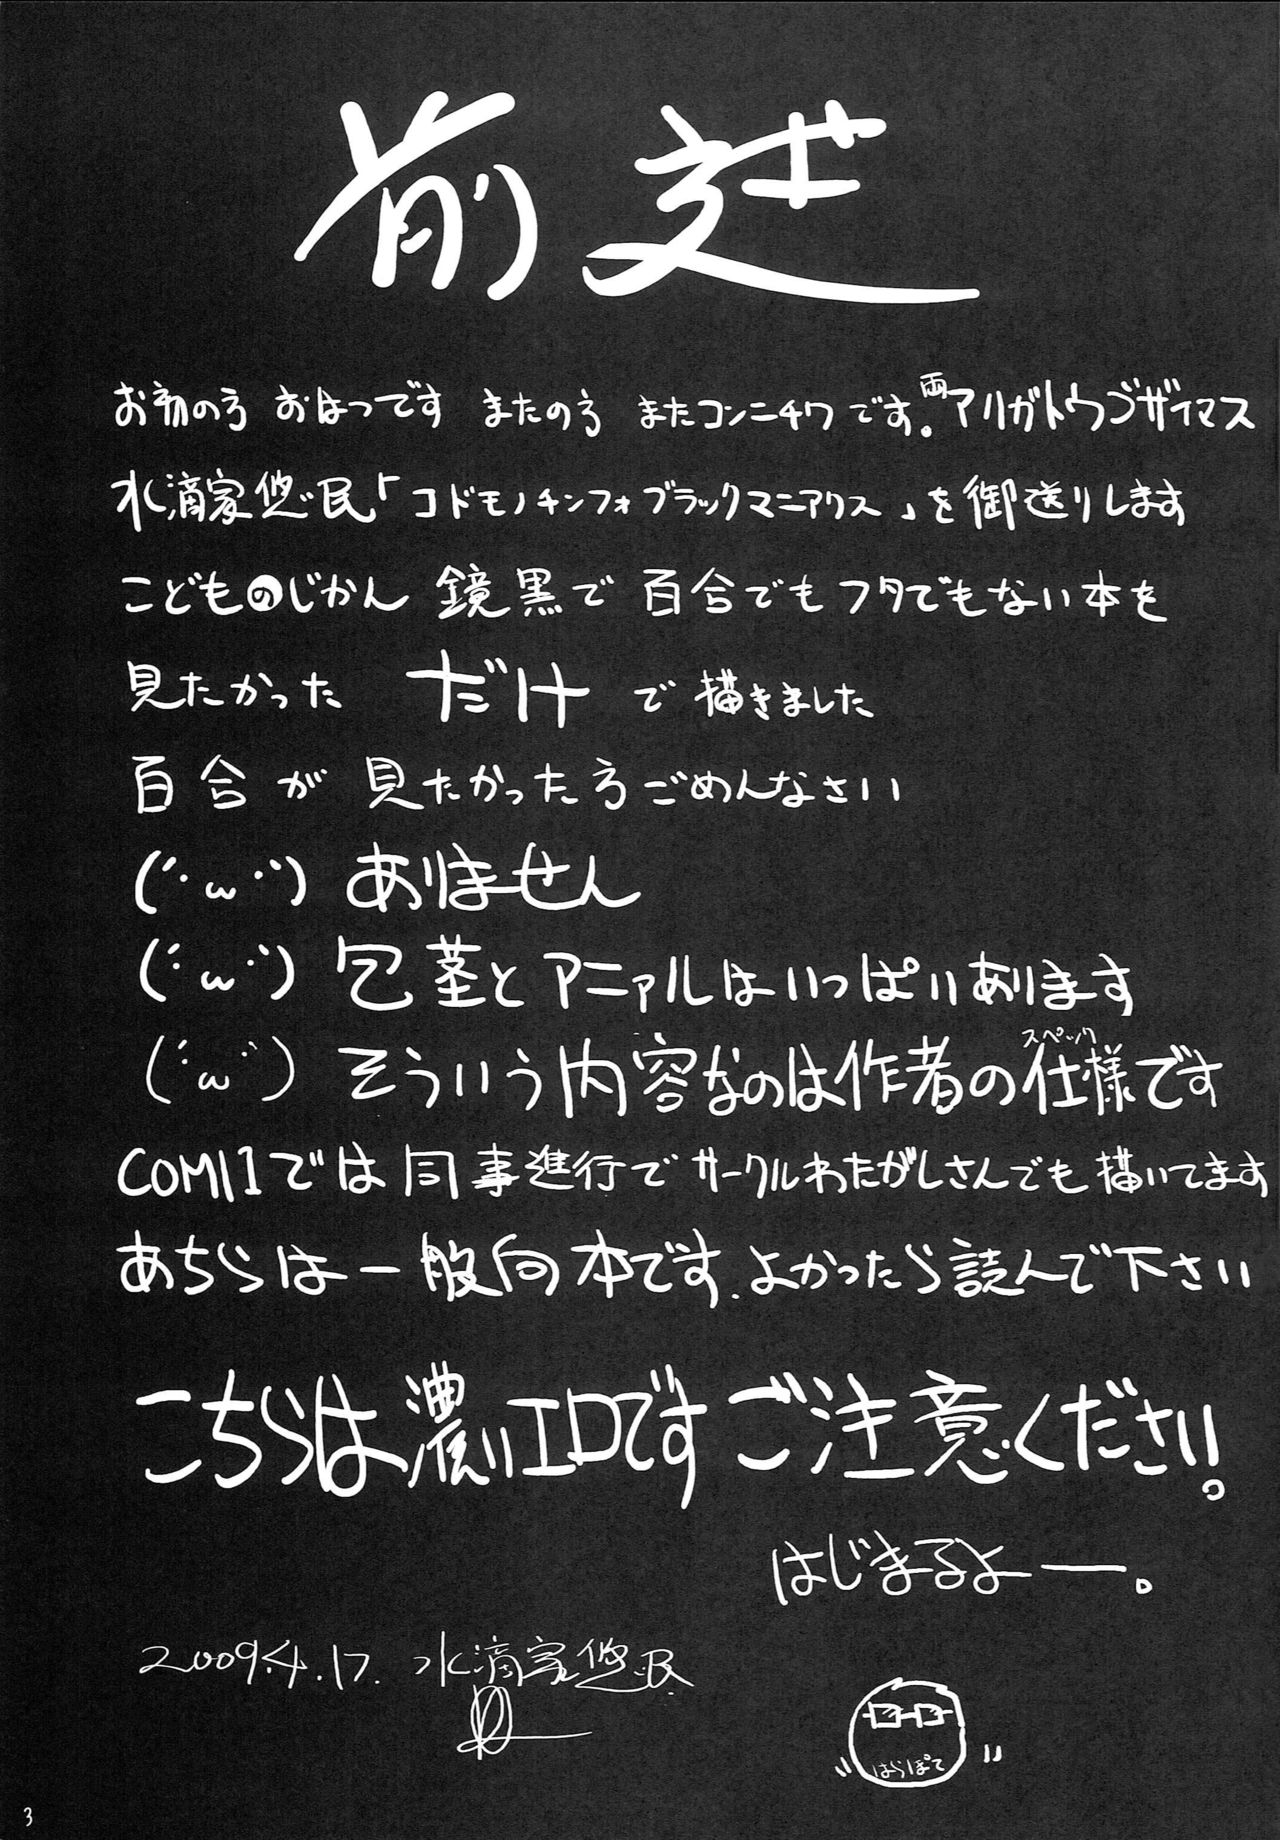 前述
お初の方 おはつです またの方 またコンニチワです。両アリガトウゴザイマス
水滴家悠民「コドモノチンフォブラックマニアクス」を御送りします
こどものじかん 鏡黒で 百合でもフタでもない本を
見たかった だけ で描きました
百合が 見たかった方ごめんなさい
(´･ω･`) ありません
(´･ω･`) 包茎とアニァルはいっぱいあります
(´･ω･`) そういう内容なのは作者の仕様です
スペック
COMI1では同事進行でサークルわたがしさんでも描いてます
あちらは一般向本です.よかったら読んで下さい
こちらは濃いエロです ご注意ください。
はじまるよー。
2009.4.17. 水滴家悠民
はらぽて
3